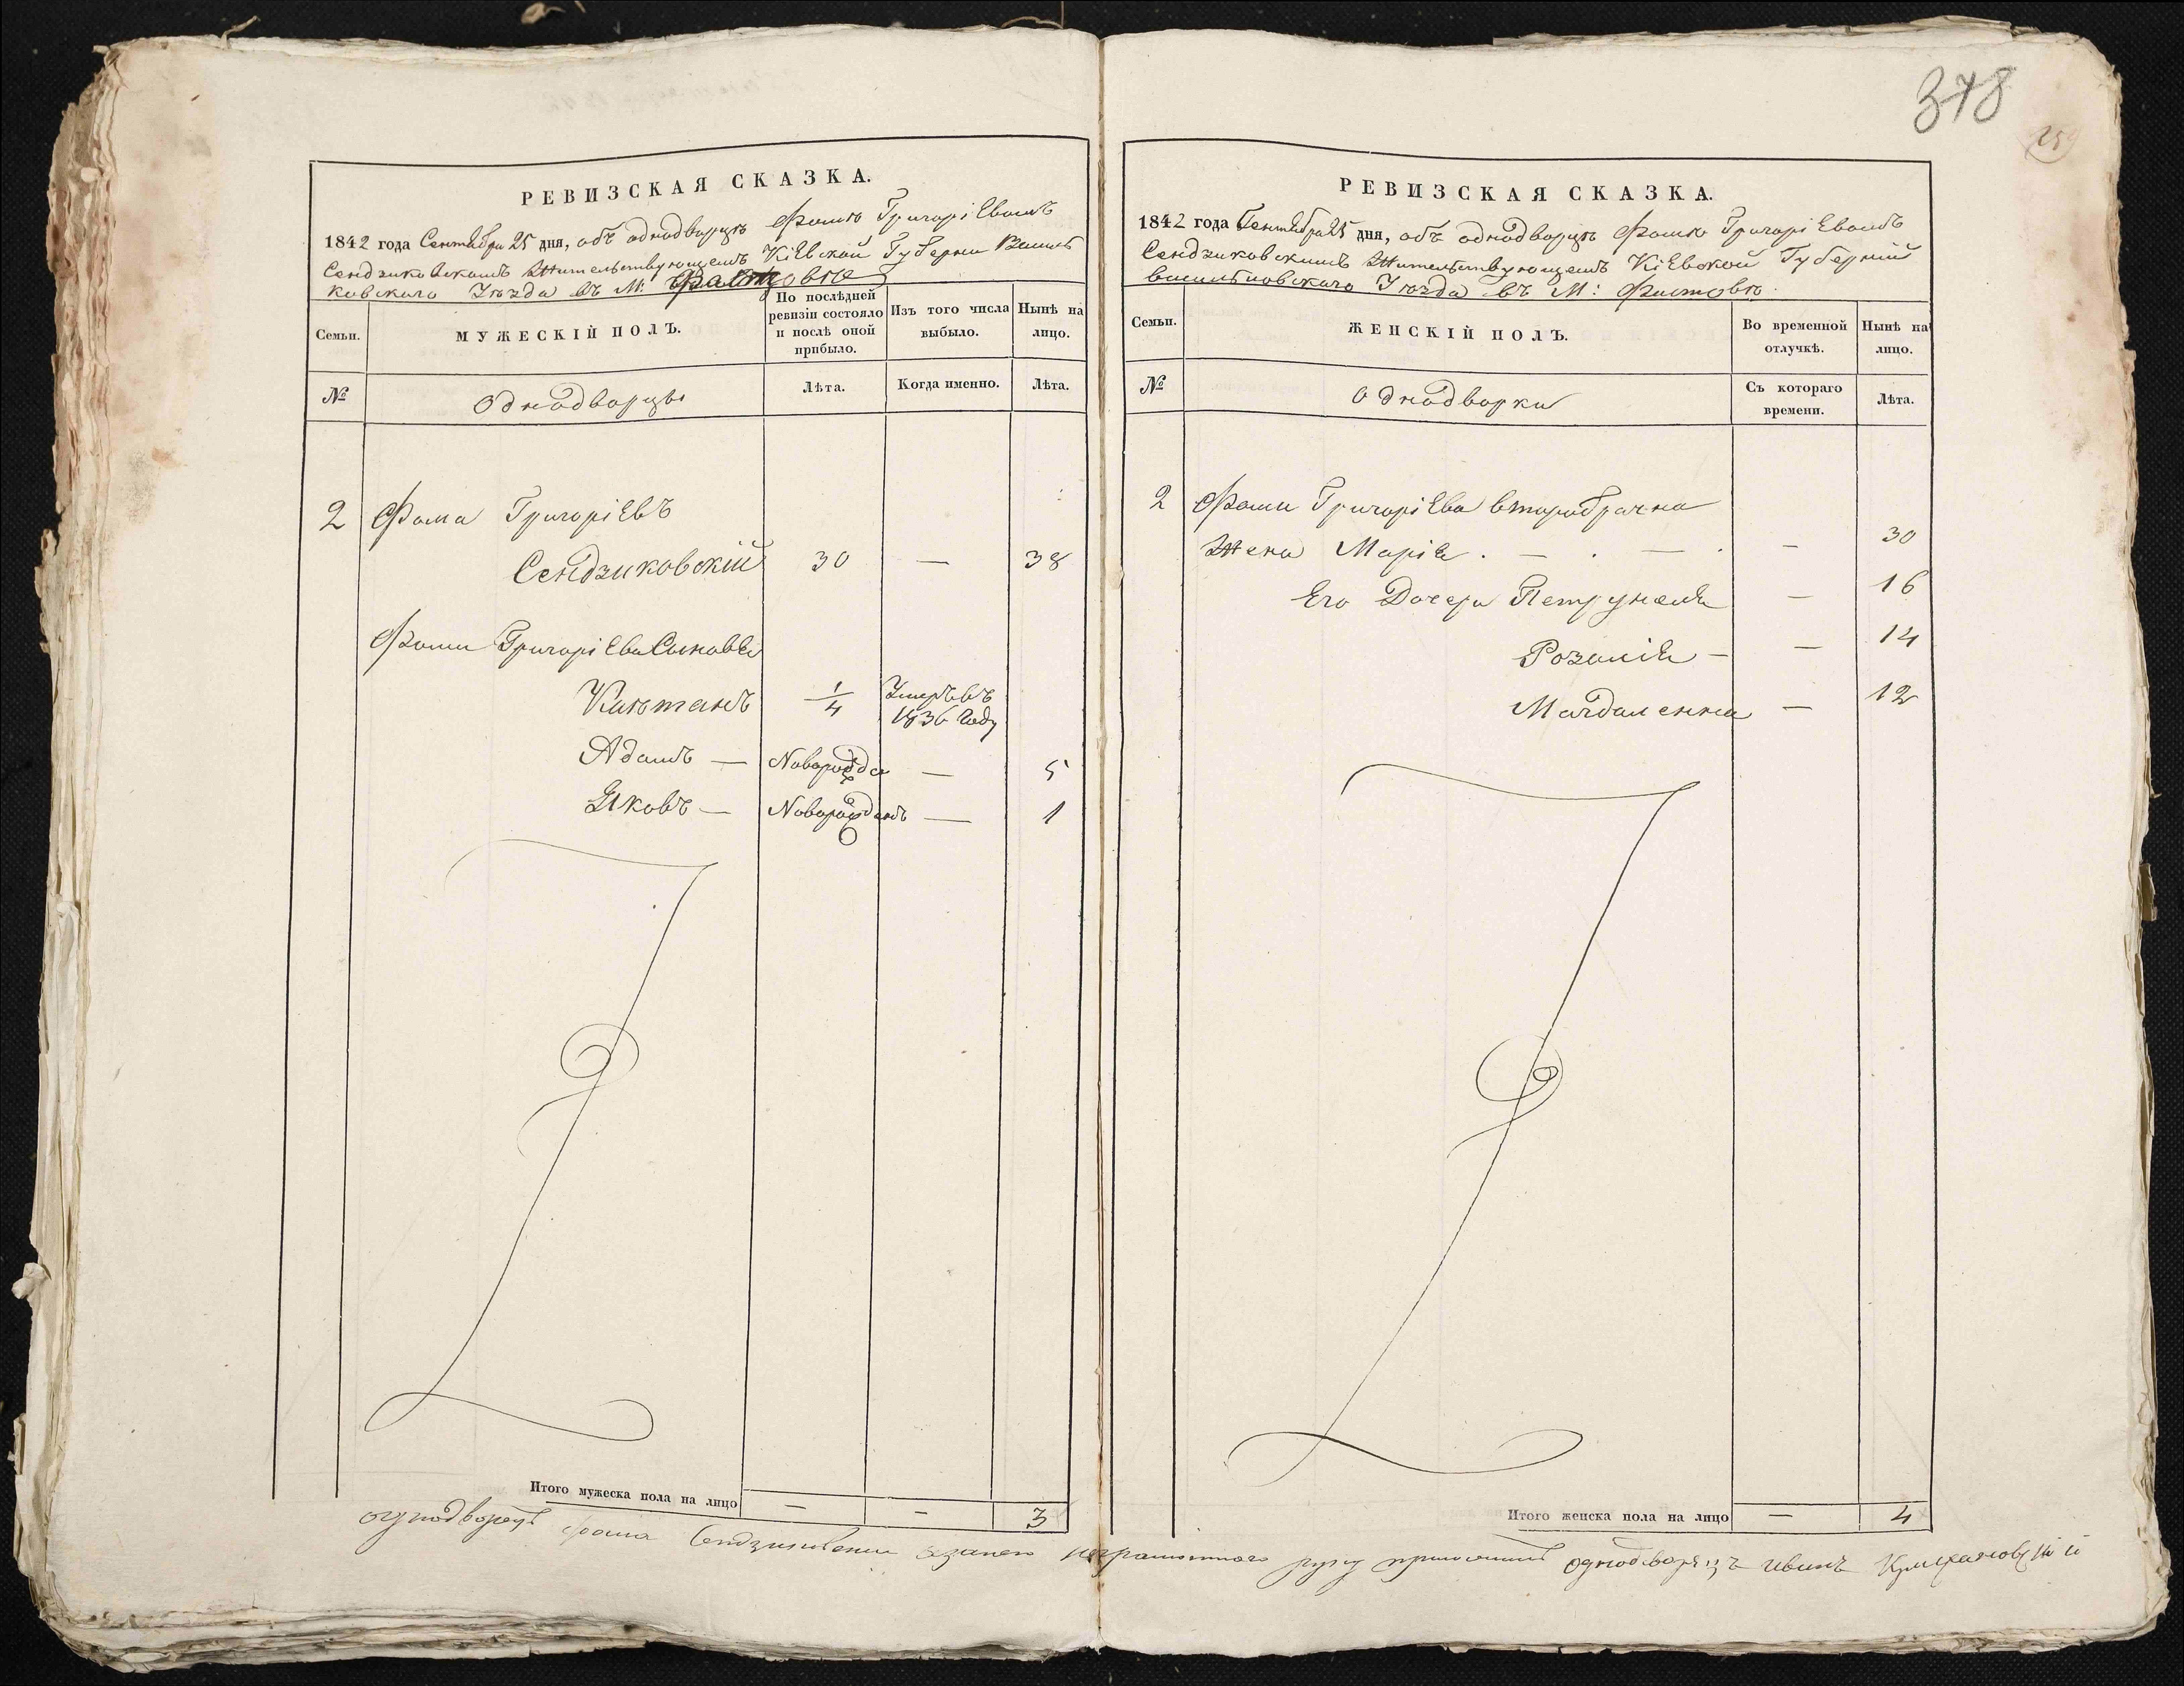 378
259
РЕВИЗСКАЯ СКАЗКА.
1842 года Сентября 25 дня, объ однодворцѣ Фомѣ Григоріевомъ
Сендзиковскомъ Жительствующемъ Кіевской Губерніи Василь
ковскаго Уѣзда въ М: Фастовѣ
Семьи.
МУЖЕСКІЙ ПОЛЪ.
По послѣдней ревизіи состояло и послѣ оной прибыло.
Изъ того числа выбыло.
Нынѣ на лицо.
№
Однодворцы
Лѣта.
Когда именно.
Лѣта.
2 Фома Григоріевъ
Сендзиковскій 30 — 38
Фомы Григоріева Сыновья
Каѣтанъ 1/4 Умеръ въ 1836 Году
Адамъ — Новорожде — 5
Яковъ — Новорожденъ — 1
Итого мужеска пола на лицо — — 3
РЕВИЗСКАЯ СКАЗКА.
1842 года Сентября 25 дня, объ однодворцѣ Фомѣ Григоріевомъ
Сендзиковскимъ Жительствующемъ Кіевской Губерній
васильковскаго Уѣзда въ М: Фастовѣ.
Семьи.
ЖЕНСКІЙ ПОЛЪ.
Во временной отлучкѣ.
Нынѣ на лицо.
№
Однодворки
Съ котораго времени.
Лѣта.
2 Фомы Григоріева второбрачна
Жена Марія . — . — . — 30
Его Дочери Петрунеля — 16
Розалія — — 14
Магдаленна — 12
Итого женска пола на лицо — 4
однодворецъ фома неграмотнаго руку приложилъ однодворецъ иванъ